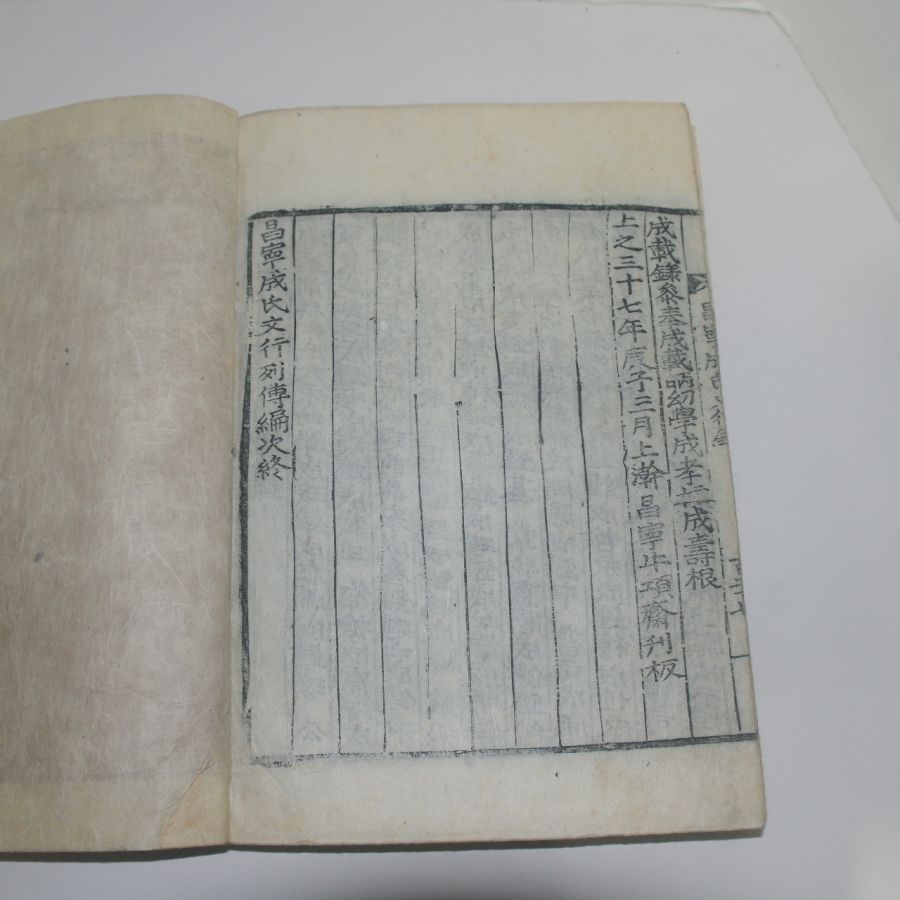 昌寧成氏文行錄
成載鎔參奉成載晒幼學成孝仁成壽根
上之三十七年庚子三月上澣昌寧牛項齋刊板
昌寧成氏文行列傳編次終